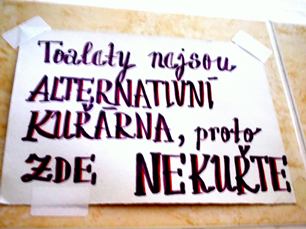 Toalety nejsou
ALTERNATIVNÍ
KUŘÁRNA, proto
ZDE NEKUŘTE